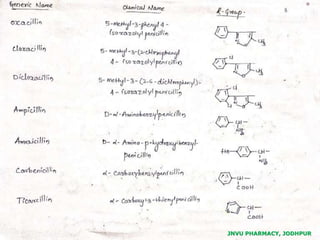 Generic Name Chemical Name R-Group
oxacillin 5-methyl-3-phenyl 4-
isoxazolyl penicillin
Cloxacillin 5-methyl-3-(2-chlorophenyl
4-isoxazolylpenicillin
Dicloxacillin 5-methyl-3-(2-6-dichlorophenyl)-
4-isoxazolylpenicillin
Ampicillin D-α-Aminobenzylpenicillin
Amoxicillin D-α-Amino-p-hydroxybenzyl-
penicillin
Carbenicillin α-Carboxybenzylpenicillin
Ticarcillin α-Carboxy-3-thienylpenicillin
CH₃
Cl
CH₃
Cl
Cl
CH₃
CH—
NH₂
HO CH—
NH₂
CH—
COOH
CH—
COOH
JNVU PHARMACY, JODHPUR